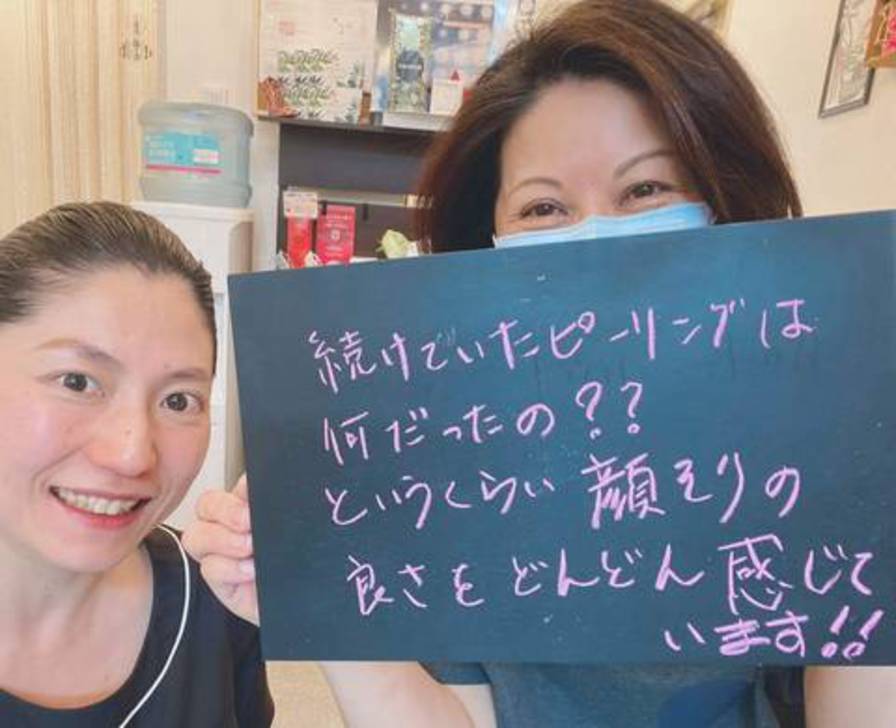 続けていたピーリングは
何だったの??
というくらい顔そりの
良さをどんどん感じて
います!!